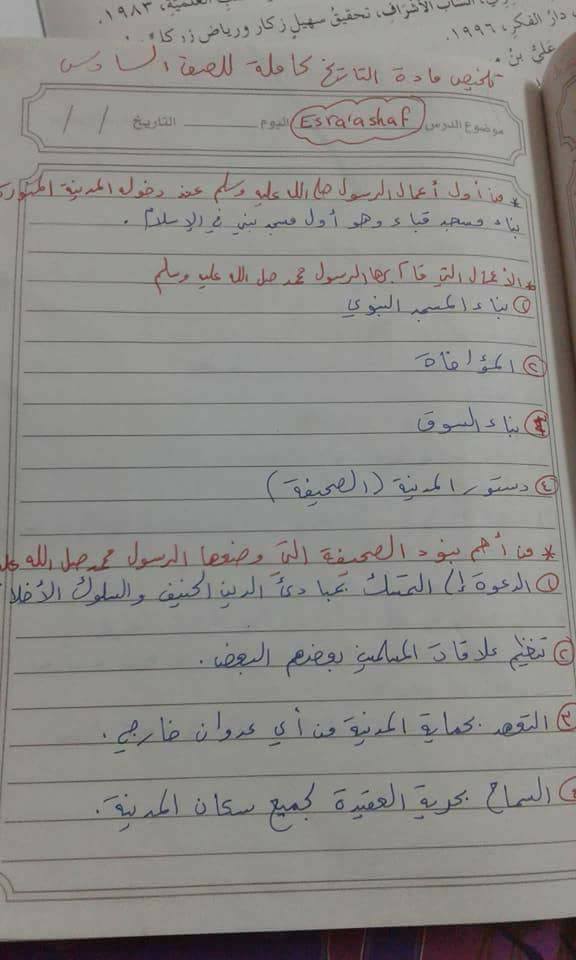 أنساب الأشراف، تحقيق سهيل زكار ورياض زركلي
دار الفكر، ١٩٩٦.
علي بن
العلمية، ١٩٨٣.
تلخيص مادة التاريخ كاملة للصف السادس
موضوع الدرس Esra'ashaf اليوم التاريخ / /
* من أول أعمال الرسول صلى الله عليه وسلم عند دخول المدينة المنورة
بناء مسجد قباء وهو أول مسجد بني في الإسلام.
* الأعمال التي قام بها الرسول محمد صل الله عليه وسلم
١ بناء المسجد النبوي
٢ المؤاخاة
٣ بناء السوق
٤ دستور المدينة (الصحيفة)
* من أهم بنود الصحيفة التي وضعها الرسول محمد صل الله
١ الدعوة إلى التمسك بمبادئ الدين الحنيف والسلوك الأخلا
٢ تنظيم علاقات المسلمين بعضهم البعض.
٣ التعهد بحماية المدينة من أي عدوان خارجي.
٤ السماح بحرية العقيدة لجميع سكان المدينة.